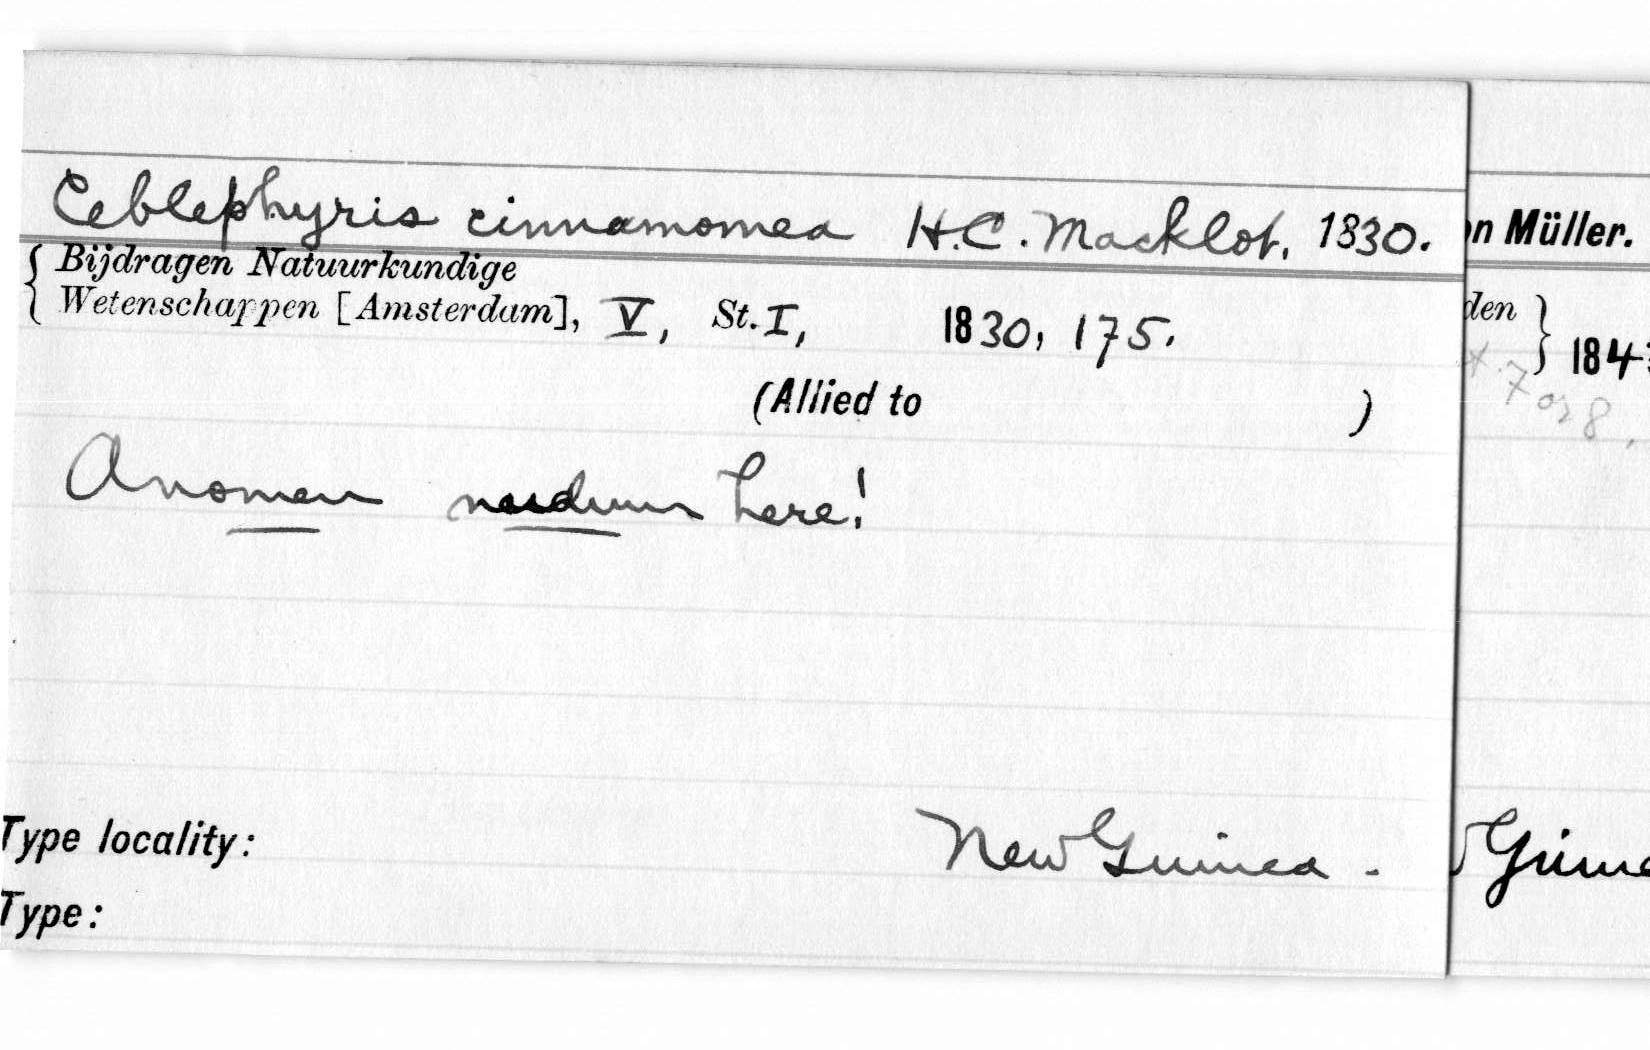 Ceblephyris cinnamomea H.C. Macklot, 1830.
Bijdragen Natuurkundige
Wetenschappen [Amsterdam], V, St. I, 1830, 175.
(Allied to )
A nomen nudum here!
Type locality: New Guinea -
Type:
n Müller.
den
184
7 or 8,
Guine